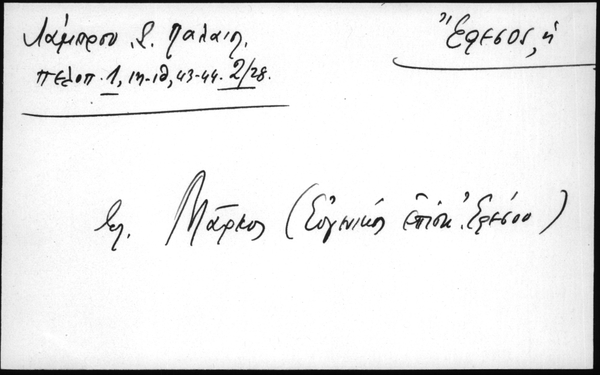 Λάμπρου Σ. Παλαιολ.
πελοπ. 1, ιη-ιθ, 43-44. 2/28.
Ἔφεσος, ἡ
Βλ. Μᾶρκος (Εὐγενικός ἐπίσκ. Ἐφέσου)